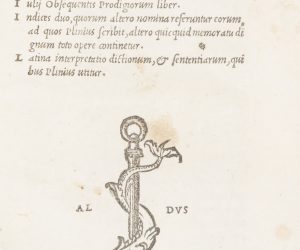 I ulij Obsequentis Prodigiorum liber.
I ndices duo, quorum altero nomina referuntur eorum,
ad quos Plinius scribit, altero quicquid memoratu di
gnum toto opere continetur.
L atina interpretatio dictionum, & sententiarum, qui
bus Plinius utitur.
AL DVS